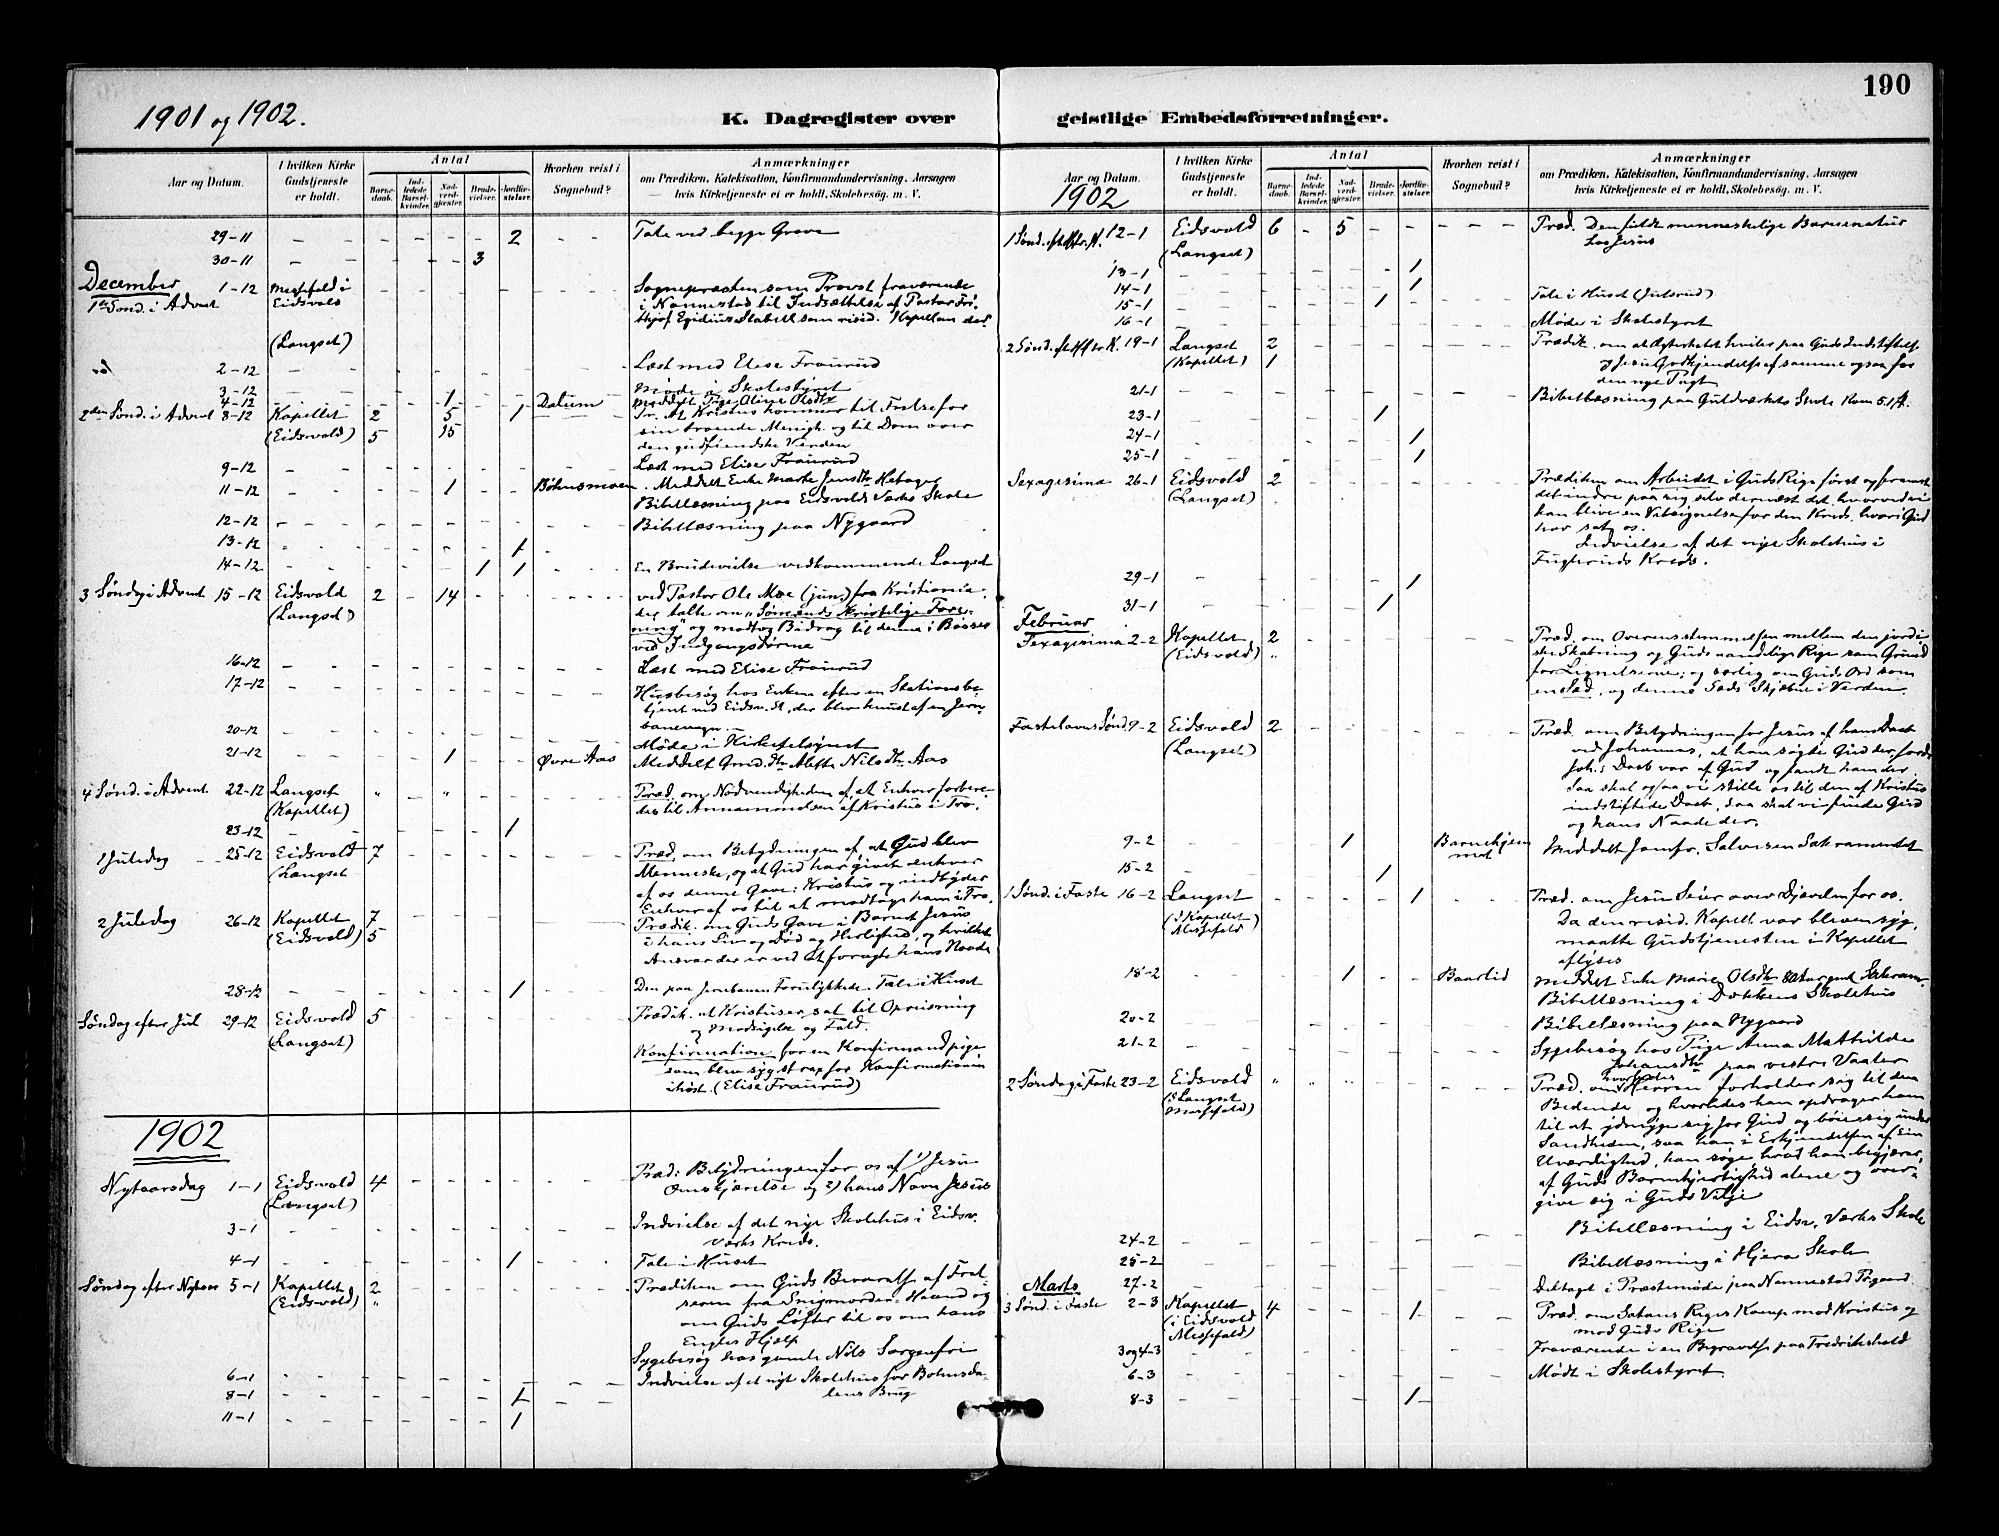 190
1901 og 1902.
K. Dagregister over
Aar og Datum.
I hvilken Kirke Gudstjeneste er holdt.
Antal
Barne-daab.
Ind-ledede Barsel-kvinder.
Nad-verd-gjester.
Brude-vielser.
Jordfæ-stelser.
Hvorhen reist i Sognebud?
Anmærkninger
om Prædiken, Katekisation, Konfirmandundervisning, Aarsagen
hvis Kirketjeneste ei er holdt, Skolebesög, m. V.
29-11 - - - - - 2 - - Tale ved begge Grave
30-11 - - - - - 3
December 1-12 Messefald i Sognepræsten som Provst fraværende
1ste Sønd. i Advent Eidsvold i Nannestad til Indsættelse af Pastor Fri
thjof Egidius Stabell som resid. Kapellan der.
(Langset)
2-12 Læst med Elise Fraurud
3-12 Møde i Skolestyret
4-12 1 Dalum Meddelt Pige Oline Olsdtr
2den Sønd. i Advent 8-12 Kapellet 2 5 1 Pr. At Kristus kommer til Frelse for
(Eidsvold) 5 15 sin troende Menigh. og til Dom over
den gudfiendske Verden
9-12 Læst med Elise Fraurud
11-12 1 Bøhnsmoen Meddelt Enke Marte Jensdtr Habager
Bibellæsning paa Eidsvolds Værks Skole
12-12 Bibellæsning paa Nygaard
13-12 1
14-12 1 1 En Brudevielse vedkommende Langset
3 Søndag i Advent 15-12 Eidsvold 2 - 14 ved Pastor Ole Moe (jun.) fra Kristiania
(Langset) der talte om "Sømænds kristelige Fore
ning" og modtog Bidrag til denne i Bøsser
ved Indgangsdørene
16-12 Læst med Elise Fraurud
17-12 Husbesøg hos Enken efter en Stationsbe-
tjent ved Eidsv. St., der blev knust af en Jern-
banevogn.
20-12 Møde i Kirketilsynet
21-12 1 Øvre Aas Meddelt Grmd. Dtr Mette Nilsdtr Aas
4 Sønd. i Advent 22-12 Langset " - " Præd. om Nødvendigheden af, at Enhver forbere-
(Kapellet) des til Annammelsen af Kristus i Tro.
23-12 1
1 Juledag 25-12 Eidsvold 7 Præd. om Betydningen af, at Gud blev
(Langset Menneske, og at Gud har givet enhver
af os denne Gave: Kristus og indbyder
Enhver af os til at modtage ham i Tro.
2 Juledag 26-12 Kapellet 7 Prædik. om Guds Gave i Barnet Jesus
(Eidsvold) 5 i hans Liv og Død og Herlighed, og hvilket
Ansvar der er ved at foragte hans Naade
28-12 1 Den paa Jernbanen Forulykkede. Tale i Huset
Søndag efter Jul 29-12 Eidsvold 5 Prædik. at Kristus er sat til Opreisning
(Langset) og Modsigelse og Fald.
Konfirmation for en Konfirmandpige
som blev syg strax før Konfirmationen
ihøst. (Elise Fraurud)
1902
Nytaarsdag 1-1 Eidsvold 4 Præd: Betydningen for os af 1) Jesu
(Langset) Omskjærelse og 2) hans Navn Jesus
3-1 Indvielse af det nye Skolehus i Eidsv.
Værks Kreds.
4-1 1 Tale i Huset
Søndag efter Nytaar 5-1 Kapellet 2 Prædiken om Guds Bevarelse af Frel-
(Eidsvold) " seren fra Snigmorderes Haand og
om Guds Løfter til os om hans
Engles Hjælp
Sygebesøg hos gamle Nils Sorgenfri
6-1 Indvielse af et nyt Skolehus for Bøhnsda-
8-1 1 lens Brug
11-1 1
geistlige Embedsforretninger.
Aar og Datum.
1902
I hvilken Kirke Gudstjeneste er holdt.
Antal
Barne-daab.
Ind-ledede Barsel-kvinder.
Nad-verd-gjester.
Brude-vielser.
Jordfæ-stelser.
Hvorhen reist i Sognebud?
Anmærkninger
om Prædiken, Katekisation, Konfirmandundervisning, Aarsagen
hvis Kirketjeneste ei er holdt, Skolebesög, m. V.
1 Sønd. eft H. tr. K. 12-1 Eidsvold 6 - 5 - - Præd. Den fulde menneskelige Barnenatur
(Langset) hos Jesus
13-1 1
14-1 1
15-1 1 Tale i Huset (Julsrud)
16-1 Møde i Skolestyret
2 Sønd. eft H tr K. 19-1 Langset 2 Prædik. om at Ægteskabet hviler paa Guds Indstiftelse
(Kapellet) 1 og Jesu Godkjendelse af samme ogsaa for
den nye Pagt
21-1 Bibellæsning paa Guldværkets Skole Rom 5. 1 ff.
23-1 1
24-1 1
25-1 1
Sexagesima 26-1 Eidsvold 2 Prædiken om Arbeidet i Guds Rige først og fremst
(Langset) det indre paa sig selv dernæst det hvorved vi
kan blive en Velsignelse for den Kreds, hvori Gud
har sat os.
Indvielse af det nye Skolehus i
Fuglerud Kreds.
29-1 1
31-1 1
Februar
Sexagesima 2-2 Kapellet 2 Præd. om Overensstemmelsen mellem den jordi-
(Eidsvold) " ske Skabning og Guds aandelige Rige som Grund
for Lignelserne; og særlig om Guds Ord som
en Sæd, og denne Sæds Skjæbne i Verden.
Fastelavns Sønd. 9-2 Eidsvold 2 Præd. om Betydningen for Jesus af hans Daab
(Langset) ved Johannes, at han søgte Gud der, fordi
Joh.s Daab var af Gud og fandt ham der
saa skal ogsaa vi stille os til den af Kristus
indstiftede Daab, saa skal vi finde Gud
og hans Naade der.
9-2 1 Barnehjem Meddelt Jomfr. Salvesen Sakramentet
met
15-2 1
1 Sønd. i Faste 16-2 Langset 1 Præd. om Jesu Seier over Djævelen for os.
(I Kapellet Da den resid. Kapell. var bleven syg,
Messefald) maatte Gudstjenesten i Kapellet
aflyses
18-2 1 Baarlid Meddelt Enke Marie Olsdtr Sakram.
Bibellæsning i Dokkens Skolehus
20-2 Bibellæsning paa Nygaard
21-2 Sygebesøg hos Pige Anna Mathilde
Johansdtr paa vestre Vaaler
2 Søndag i Faste 23-2 Eidsvold " " " Præd. om hvorledes Herren forholder sig til den
(I Langset Bedende og hvorledes han opdrager ham
Messefald) til at ydmyge sig for Gud og bøie sig under
Sandheden, saa han i Erkjendelsen af Ein
Uværdighed, kan søge hvad han begjærer,
af Guds Barmhjertighed alene og over-
give sig i Guds Vilje
24-2 Bibellæsning i Eidsv. Værks Skole
25-2 Bibellæsning i Hjera Skole
27-2 Deltaget i Præstemøde paa Nannestad Pgaard
Marts
3 Sønd. i Faste 2-3 Kapellet 4 1 Præd. om Satans Riges Kamp mod Kristus og
(i Eidsvold mod Guds Rige
Messefald)
3 og 4-3 Fraværende i en Begravelse paa Fredrikshald
6-3 Mødt i Skolestyret
8-3 1